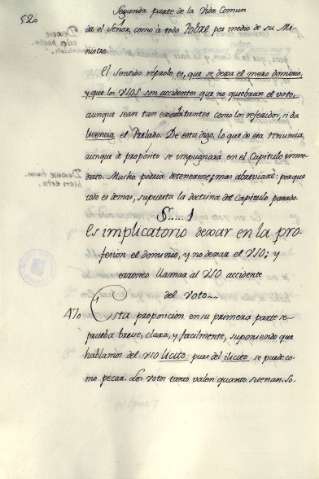 520
Segunda parte de la Vida Comun
da el Señor, como à todo Pobre por medio de su Mi-
nistro.
El sentido réprobo es, que se dexa el mero dominio,
y que los VSOS son accidentes que no quebrantan el voto,
aunque sean tan exorbitantes como los referidos, si da
licencia el Prelado. De esto digo, lo que dixe en
aunque de proposito se impugnarà en el Capitulo prime-
ro. Mucho podia detenerme; mas abreviarè: porque
todo es demas, supuesta la doctrina del Capitulo pasado.
§.... 1
Es implicatorio dexar en la pro-
fesion el dominio, y no dexar el VSO; y
erroneo llamar al VSO accidente
del voto.
Esta proposicion en su primera parte se
prueba breve, clara, y facilmente, suponiendo que
hablamos del vso licito, pues del ilicito, se puede co-
mo pecar. Los votos tanto valen quanto suenan. Si